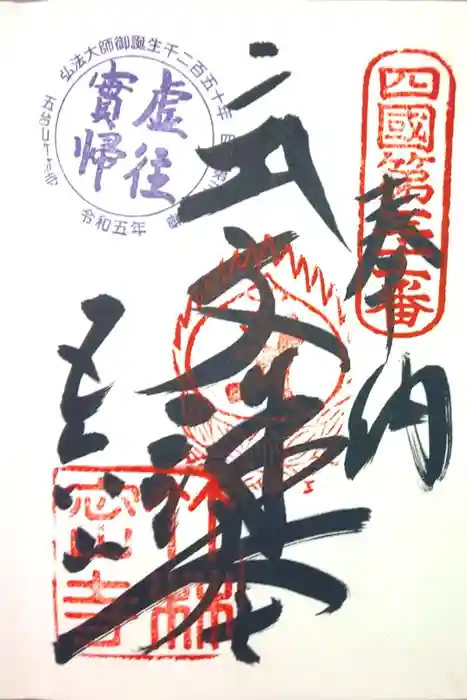 四國第三十一番
奉納
文殊
五台山
竹林
密寺
弘法大師御誕生千二百五十年
虚往
實帰
令和五年
五台山竹林寺